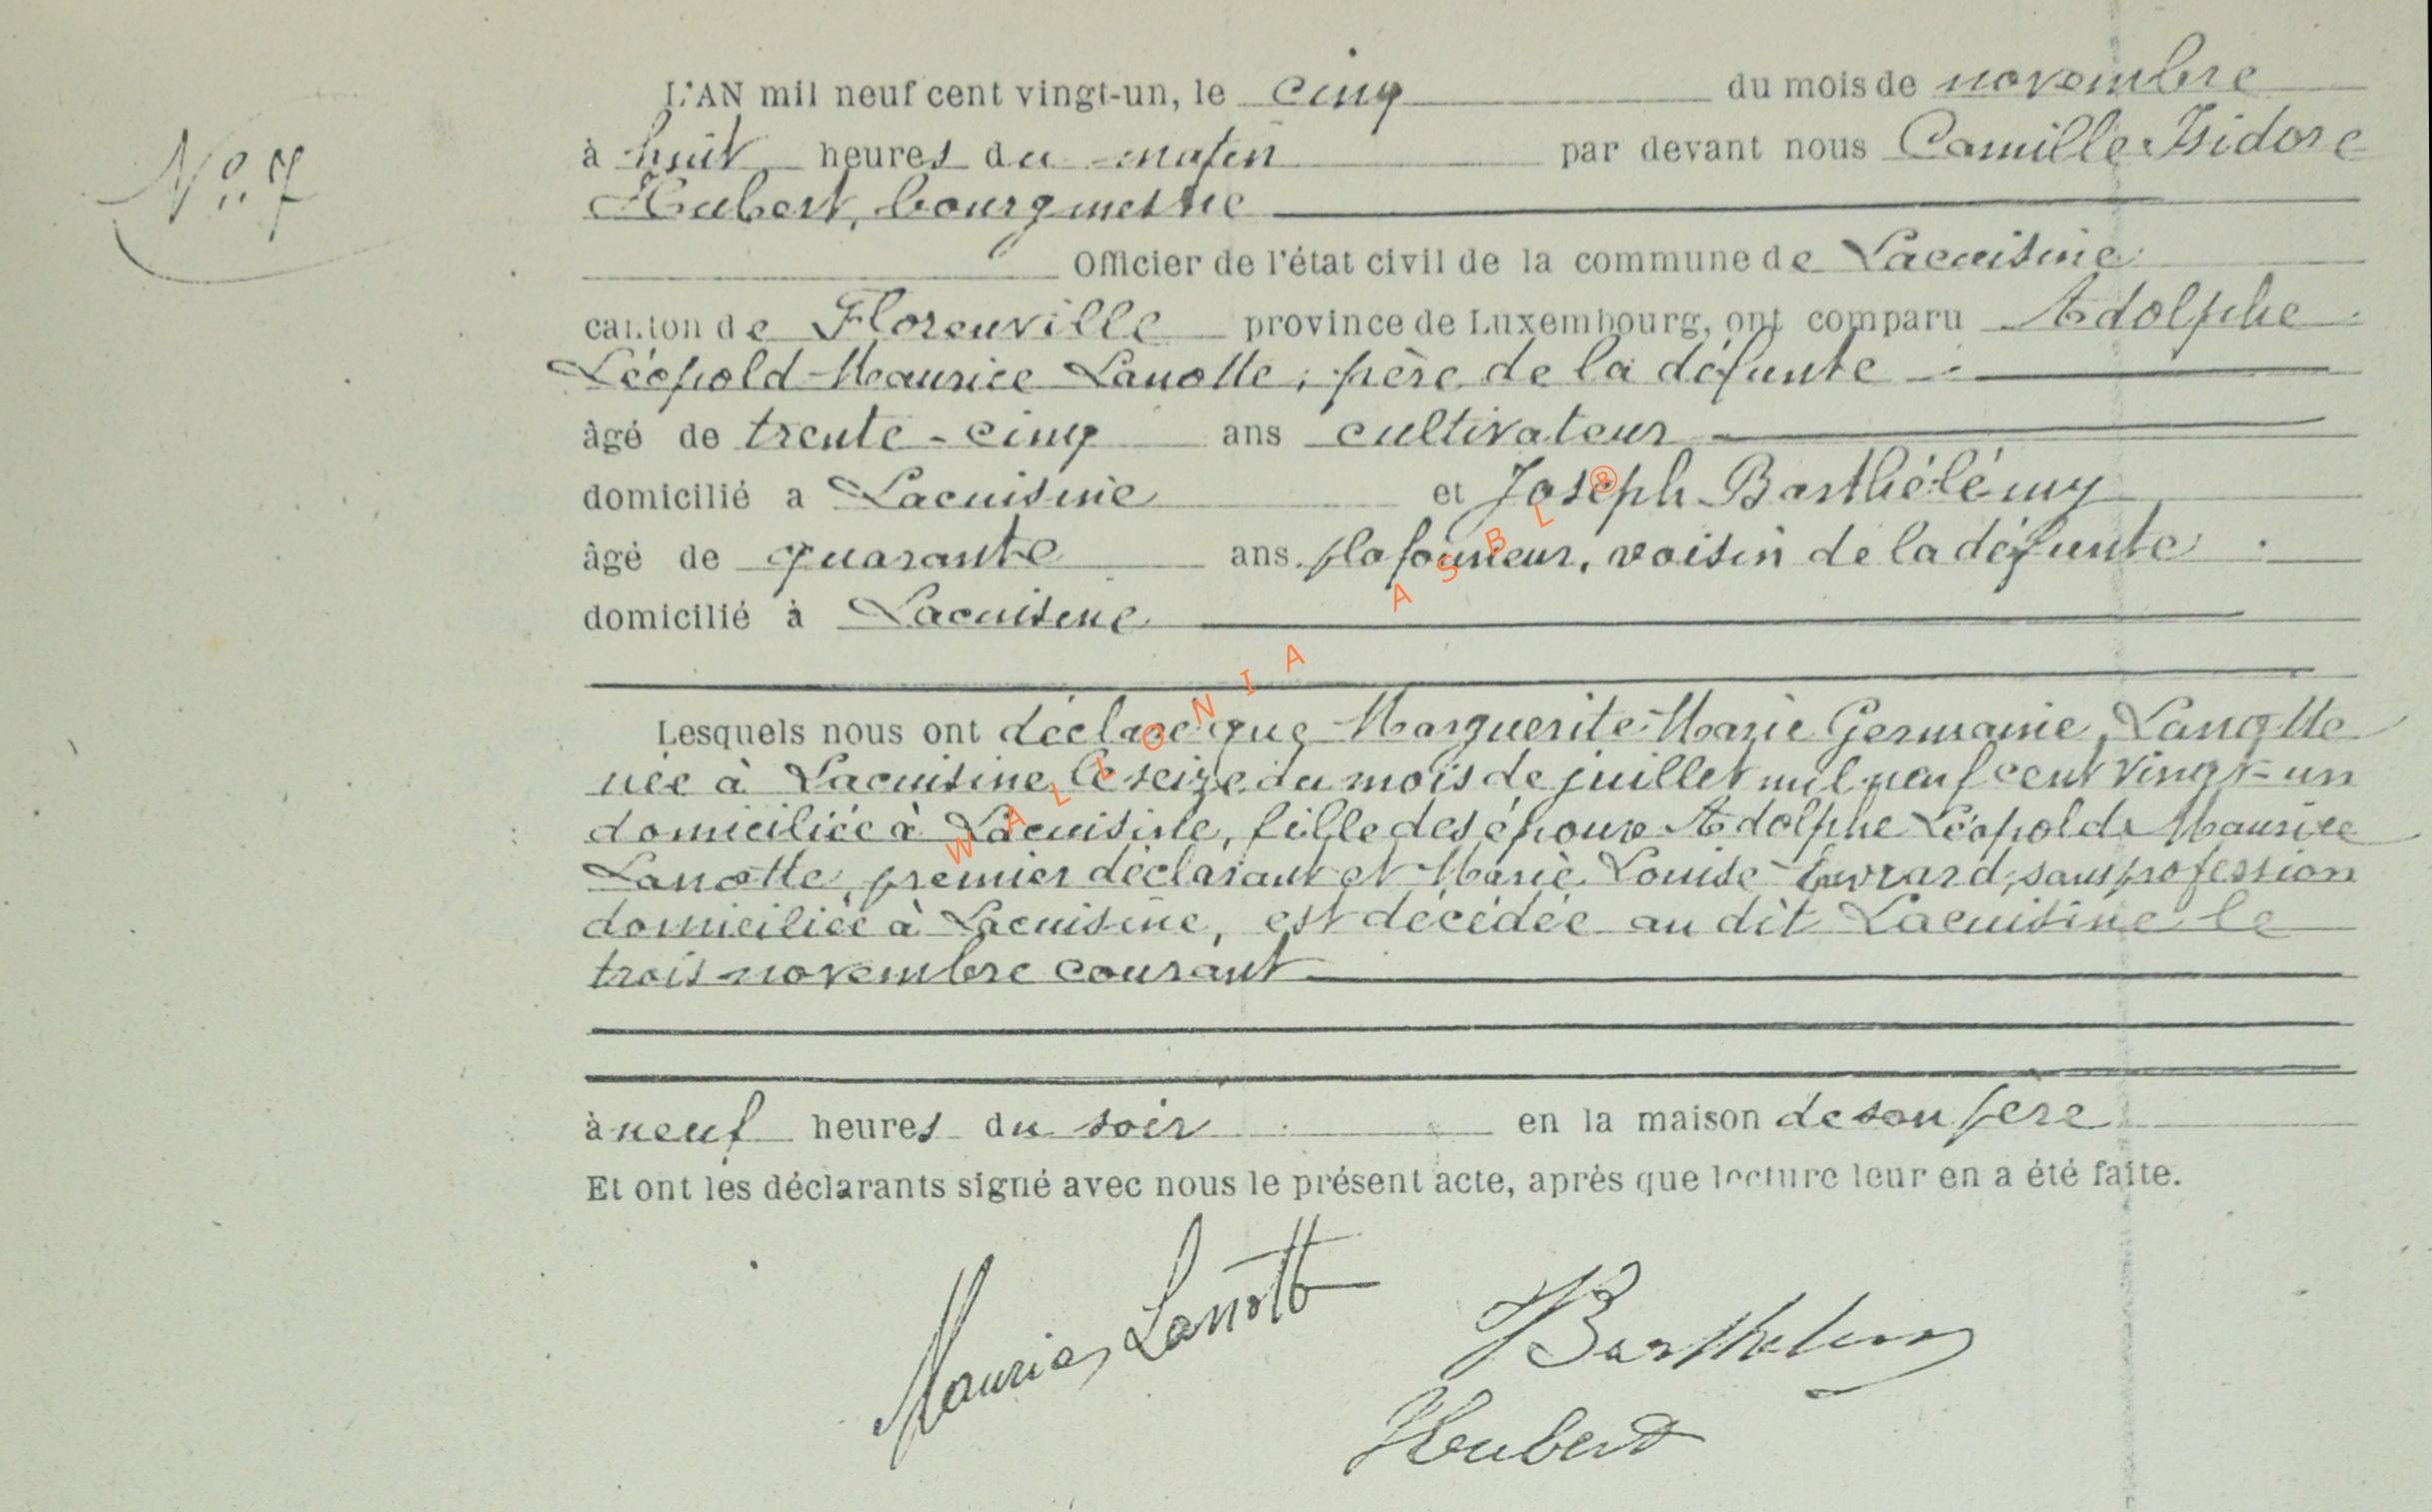 N° 7
L'AN mil neuf cent vingt-un, le cinq du mois de novembre
à huit heures du matin par devant nous Camille Isidore
Hubert, bourgmestre
Officier de l'état civil de la commune de Lacuisine
canton de Florenville province de Luxembourg, ont comparu Adolphe
Léopold Maurice Lanotte, père de la défunte
âgé de trente-cinq ans cultivateur
domicilié a Lacuisine et Joseph Barthélémy
âgé de quarante ans plafonneur, voisin de la défunte
domicilié à Lacuisine
Lesquels nous ont déclaré que Marguerite Marie Germaine Lanotte
née à Lacuisine le seize du mois de juillet mil neuf cent vingt-un
domiciliée à Lacuisine, fille des époux Adolphe Léopold Maurice
Lanotte, premier déclarant et Marie Louise Evrard, sans profession
domiciliée à Lacuisine, est décédée au dit Lacuisine le
trois novembre courant
à neuf heures du soir en la maison de son père
Et ont les déclarants signé avec nous le présent acte, après que lecture leur en a été faite.
Maurice Lanotte
Barthelemy
Hubert
WALLONIA ASBL ®